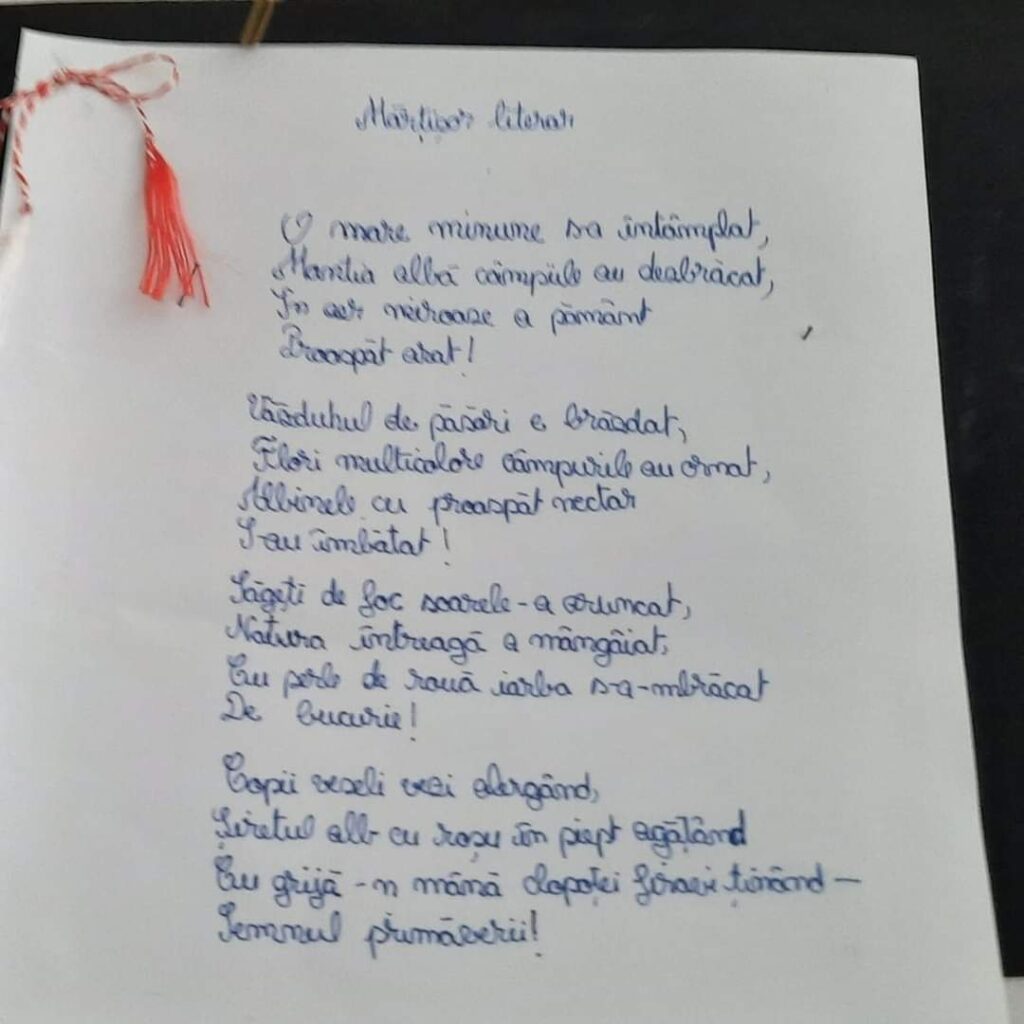 Mărțișor literar
O mare minune s-a întâmplat,
Mantia albă câmpiile au dezbrăcat,
În aer miroase a pământ
Proaspăt arat!
Văzduhul de păsări e brăzdat,
Flori multicolore câmpurile au ornat,
Albinele cu proaspăt nectar
S-au îmbătat!
Săgeți de foc soarele-a aruncat,
Natura întreagă a mângâiat,
Cu perle de rouă iarba s-a-mbrăcat
De bucurie!
Copii veseli vezi alergând,
Șiretul alb cu roșu în piept agățând
Cu grijă-n mână clopoței firavi ținând -
Semnul primăverii!